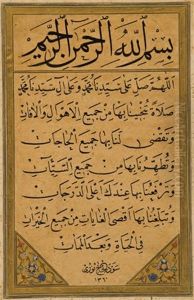 بسم الله الرحمن الرحيم
اللهم صل على سيدنا محمد وعلى آل سيدنا محمد
صلاة تنجينا بها من جميع الأهوال والآفات
وتقضي لنا بها جميع الحاجات
وتطهرنا بها من جميع السيئات
وترفعنا بها عندك أعلى الدرجات
وتبلغنا بها أقصى الغايات من جميع الخيرات
في الحياة وبعد الممات